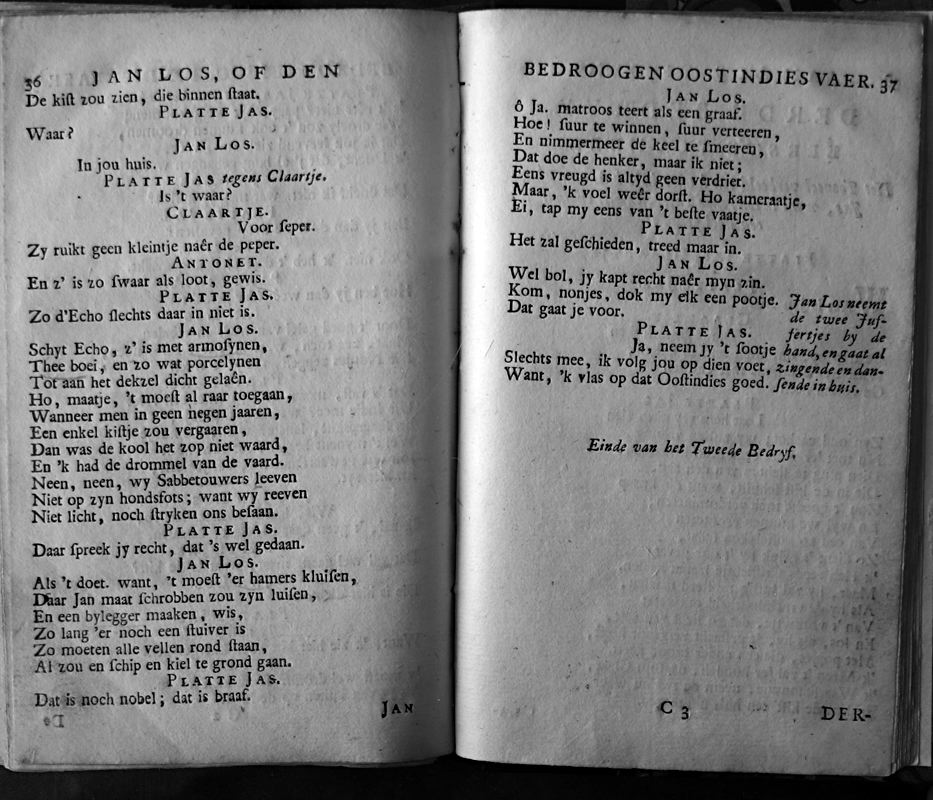 36 JAN LOS, OF DEN
De kiſt zou zien, die binnen ſtaat.
PLATTE JAS.
Waar?
JAN LOS.
In jou huis.
PLATTE JAS tegens Claartje.
Is 't waar?
CLAARTJE.
Voor ſeper.
Zy ruikt geen kleintje naêr de peper.
ANTONET.
En z' is zo ſwaar als loot, gewis.
PLATTE JAS.
Zo d'Echo ſlechts daar in niet is.
JAN LOS.
Schyt Echo, z' is met armoſynen,
Thee boei, en zo wat porcelynen
Tot aan het dekzel dicht gelaên.
Ho, maatje, 't moeſt al raar toegaan,
Wanneer men in geen negen jaaren,
Een enkel kiſtje zou vergaaren,
Dan was de kool het zop niet waard,
En 'k had de drommel van de vaard.
Neen, neen, wy Sabbetouwers leeven
Niet op zyn hondsfots; want wy reeven
Niet licht, noch ſtryken ons beſaan.
PLATTE JAS.
Daar ſpreek jy recht, dat 's wel gedaan.
JAN LOS.
Als 't doet. want, 't moeſt 'er hamers kluiſen,
Daar Jan maat ſchrobben zou zyn luiſen,
En een bylegger maaken, wis,
Zo lang 'er noch een ſtuiver is
Zo moeten alle vellen rond ſtaan,
Al zou en ſchip en kiel te grond gaan.
PLATTE JAS.
Dat is noch nobel; dat is braaf.
JAN
BEDROOGEN OOSTINDIES VAER. 37
JAN LOS.
ô Ja. matroos teert als een graaf.
Hoe! ſuur te winnen, ſuur verteeren,
En nimmermeer de keel te ſmeeren,
Dat doe de henker, maar ik niet;
Eens vreugd is altyd geen verdriet.
Maar, 'k voel weêr dorſt. Ho kameraatje,
Ei, tap my eens van 't beſte vaatje.
PLATTE JAS.
Het zal geſchieden, treed maar in.
JAN LOS.
Wel bol, jy kapt recht naêr myn zin.
Kom, nonjes, dok my elk een pootje.
Dat gaat je voor.
PLATTE JAS.
Ja, neem jy 't ſootje
Slechts mee, ik volg jou op dien voet,
Want, 'k vlas op dat Ooſtindies goed.
Jan Los neemt
de twee Juf-
fertjes by de
hand, en gaat al
zingende en dan-
ſende in huis.
Einde van het Tweede Bedryf.
C 3
DER-